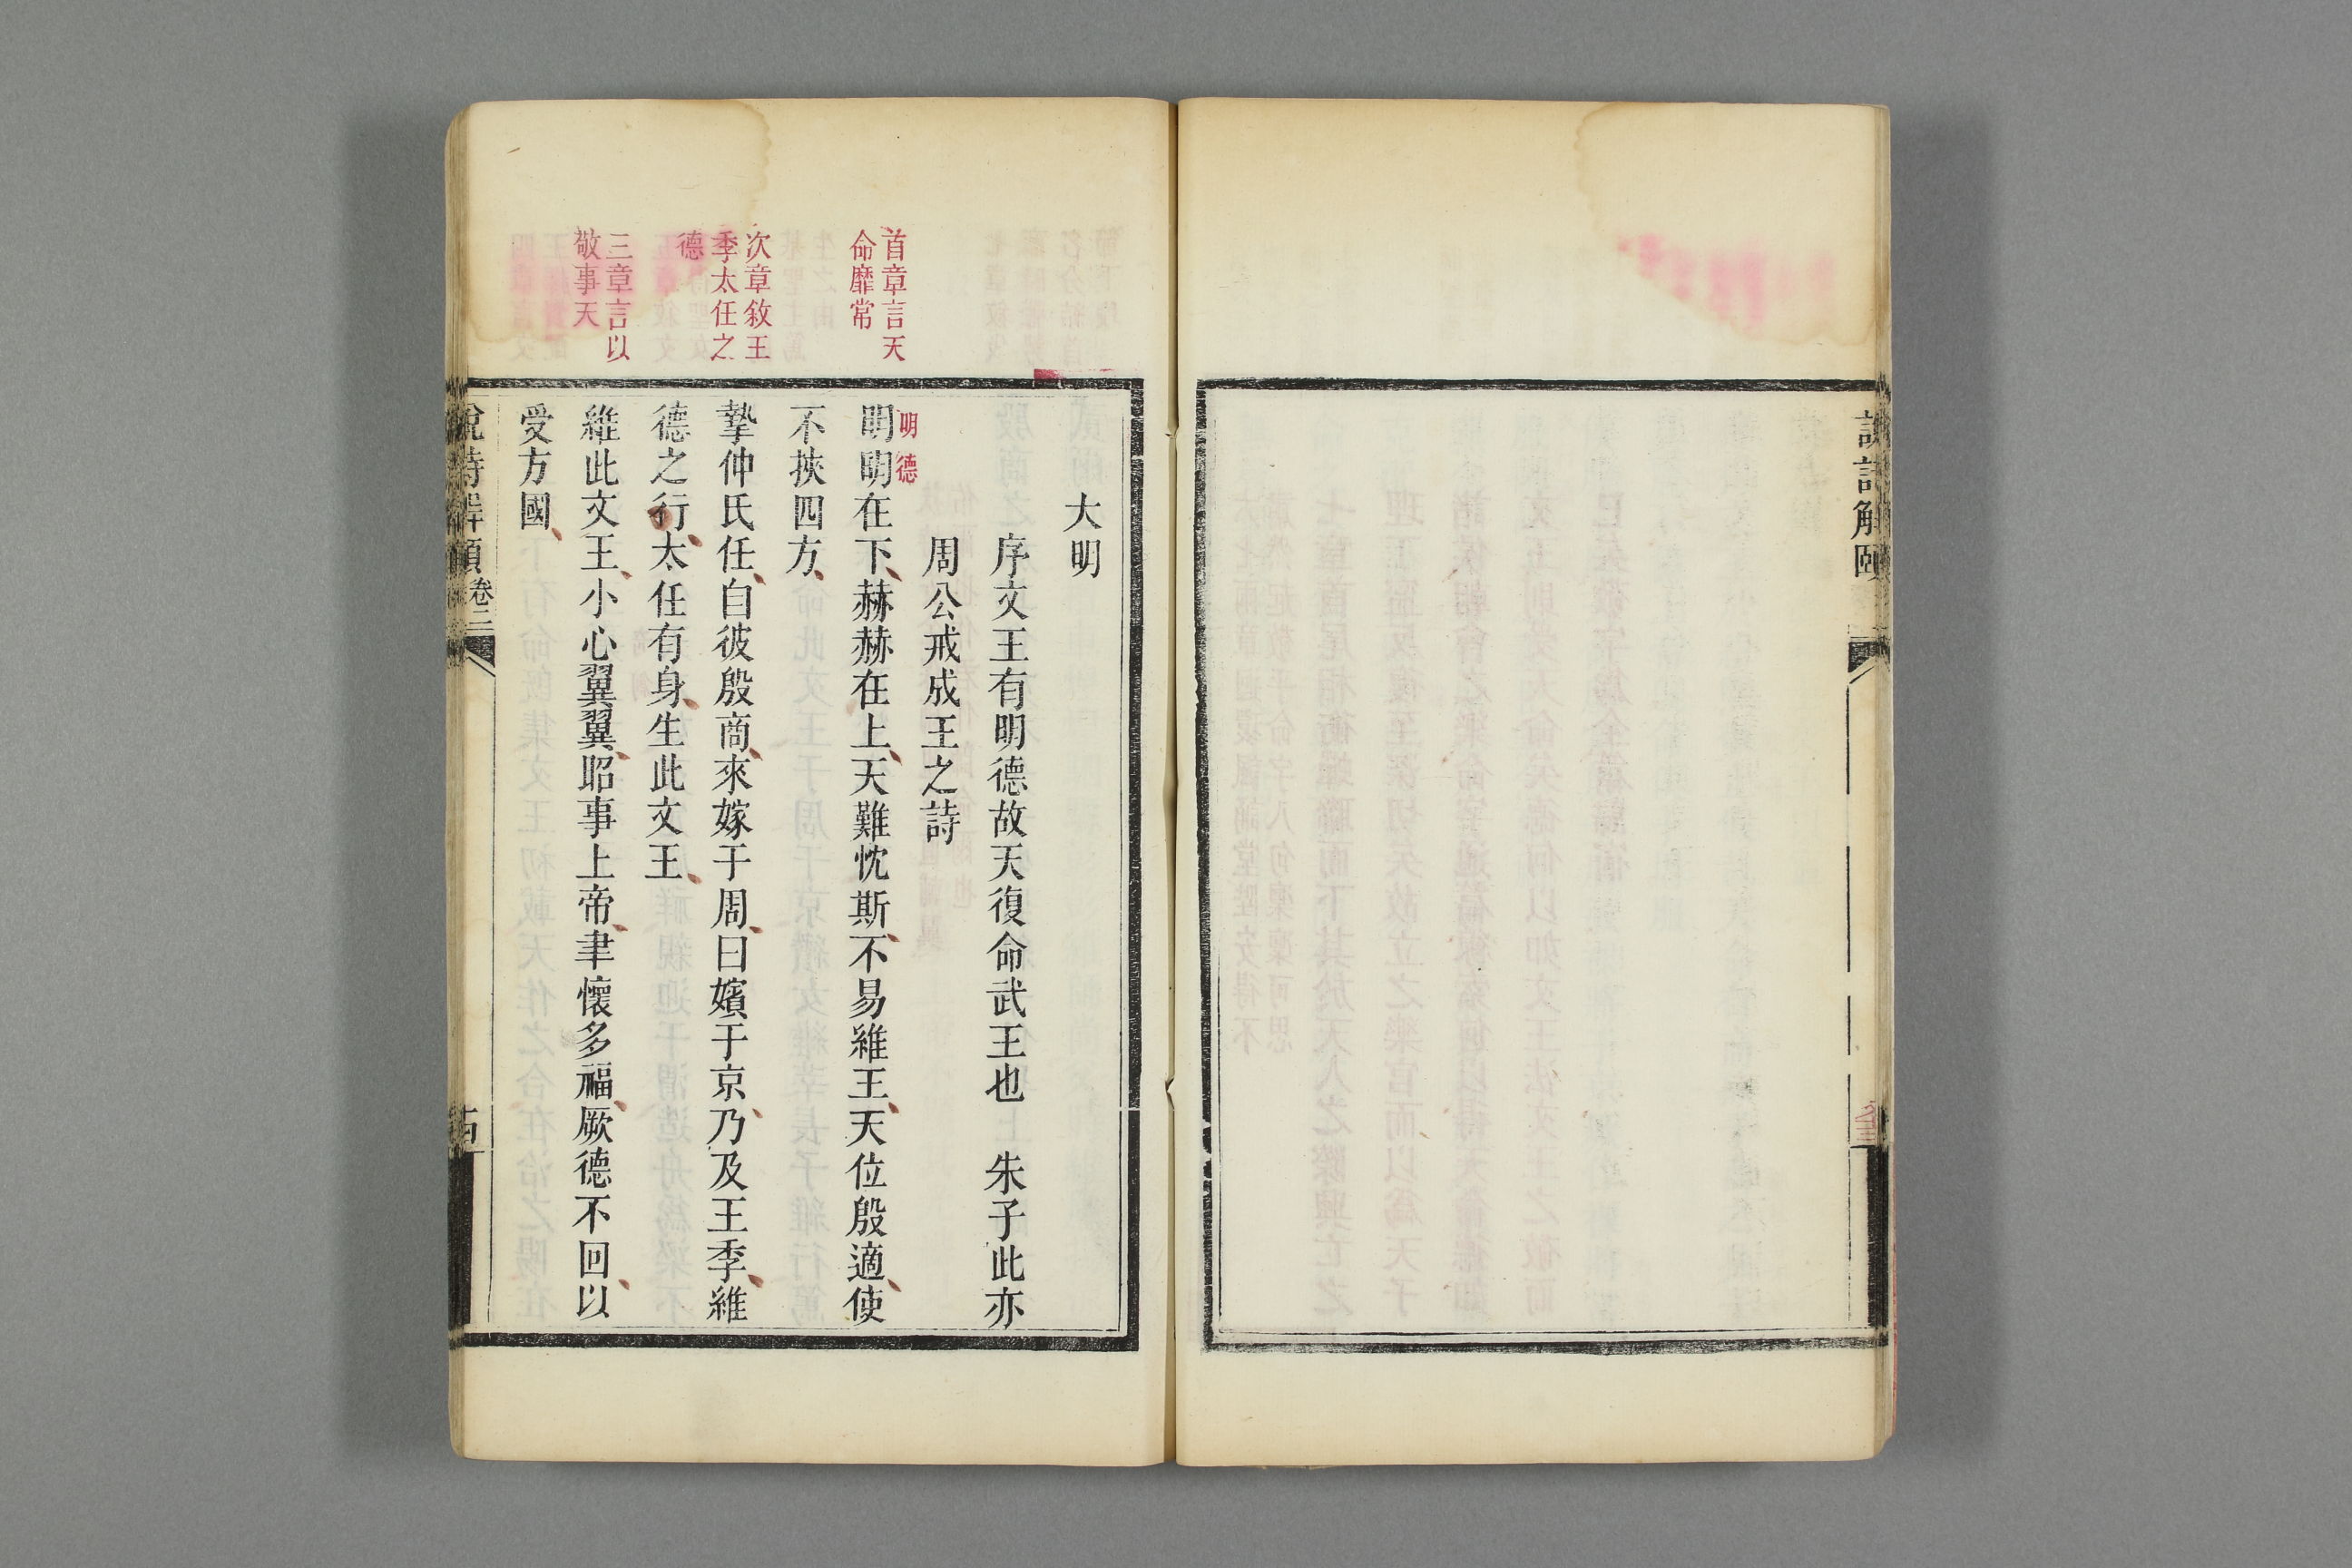 說詩解頤
大明
序文王有明德故天復命武王也 朱子此亦
周公戒成王之詩
首章言天
命靡常
明德
明明在下赫赫在上天難忱斯不易維王天位殷適使
不挾四方
次章敘王
季太任之
德
摯仲氏任自彼殷商來嫁于周曰嬪于京乃及王季維
德之行太任有身生此文王
三章言以
敬事天
維此文王小心翼翼昭事上帝聿懷多福厥德不回以
受方國
說詩解頤 卷二